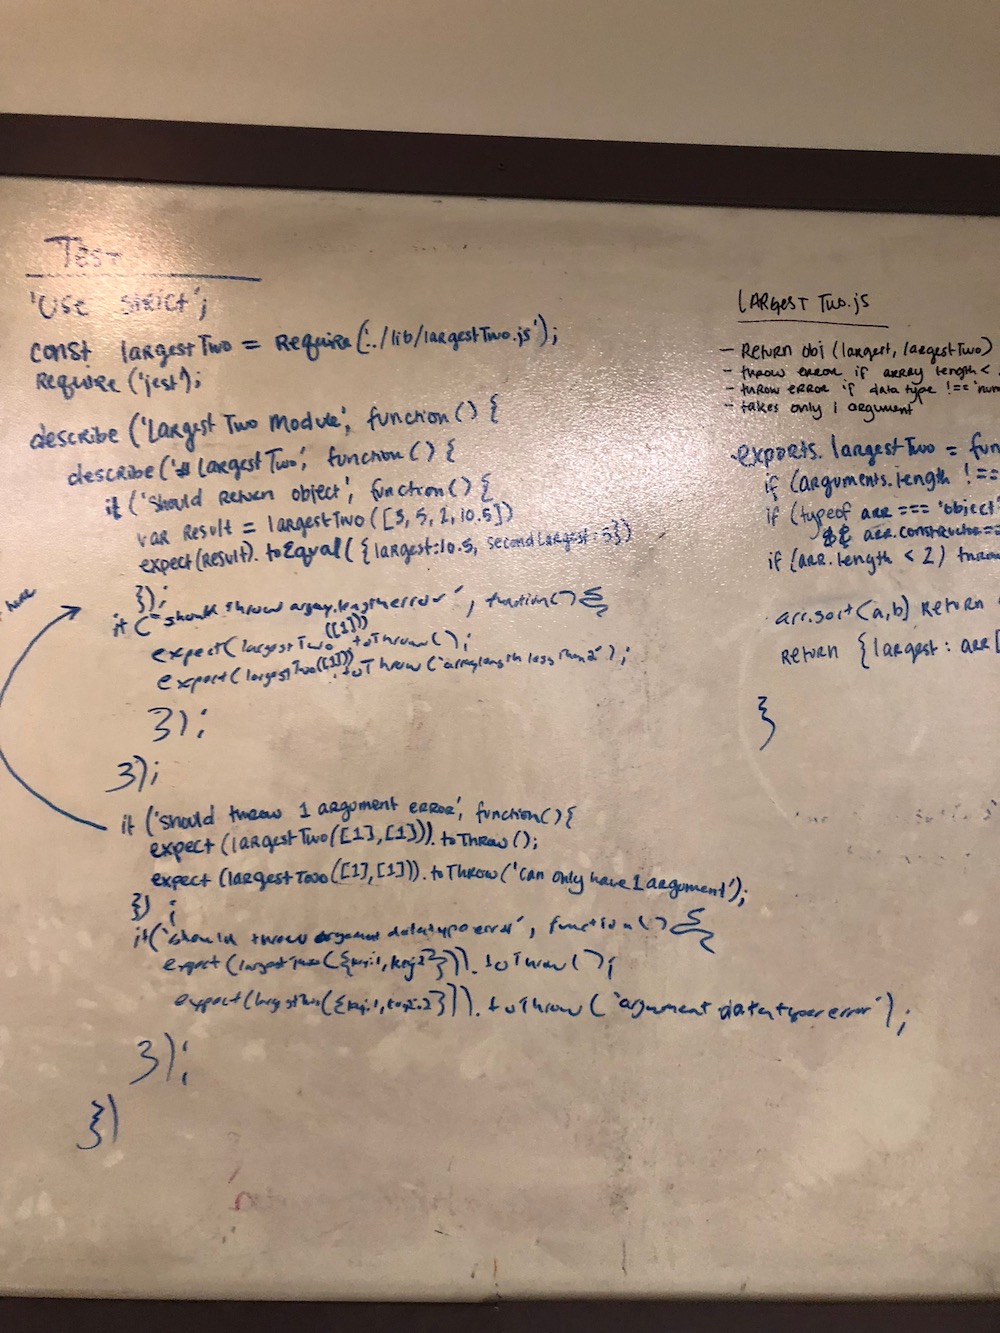 Test
'use strict';
const largestTwo = Require('./lib/largestTwo.js');
Require('jest');
describe('Largest Two Module', function() {
describe('# LargestTwo', function() {
it('Should Return object', function() {
var Result = largestTwo([3, 5, 2, 10.5])
expect(Result).toEqual({largest:10.5, secondLargest:5})
});
it("should throw array.length error", function() {
expect(largestTwo([1])).toThrow();
expect(largestTwo([1])).toThrow("array length less than 2");
});
});
here
it('should throw 1 argument error', function(){
expect(largestTwo([1],[1])).toThrow();
expect(largestTwo([1],[1])).toThrow('Can only have 1 argument');
});
it('should throw argument datatype error', function() {
expect(largestTwo({key:1, key:2})).toThrow();
expect(largestTwo({key:1, key:2})).toThrow("argument data type error");
});
})
LARGEST Two.js
- Return obj (largest, largestTwo)
- throw error if array length <
- throw error if data type !== 'num
- takes only 1 argument
exports.largestTwo = fun
if (arguments.length !==
if (typeof arr === 'object'
&& arr.constructor ==
if (arr.length < 2) throw
arr.sort(a,b) Return
Return {largest: arr[
}